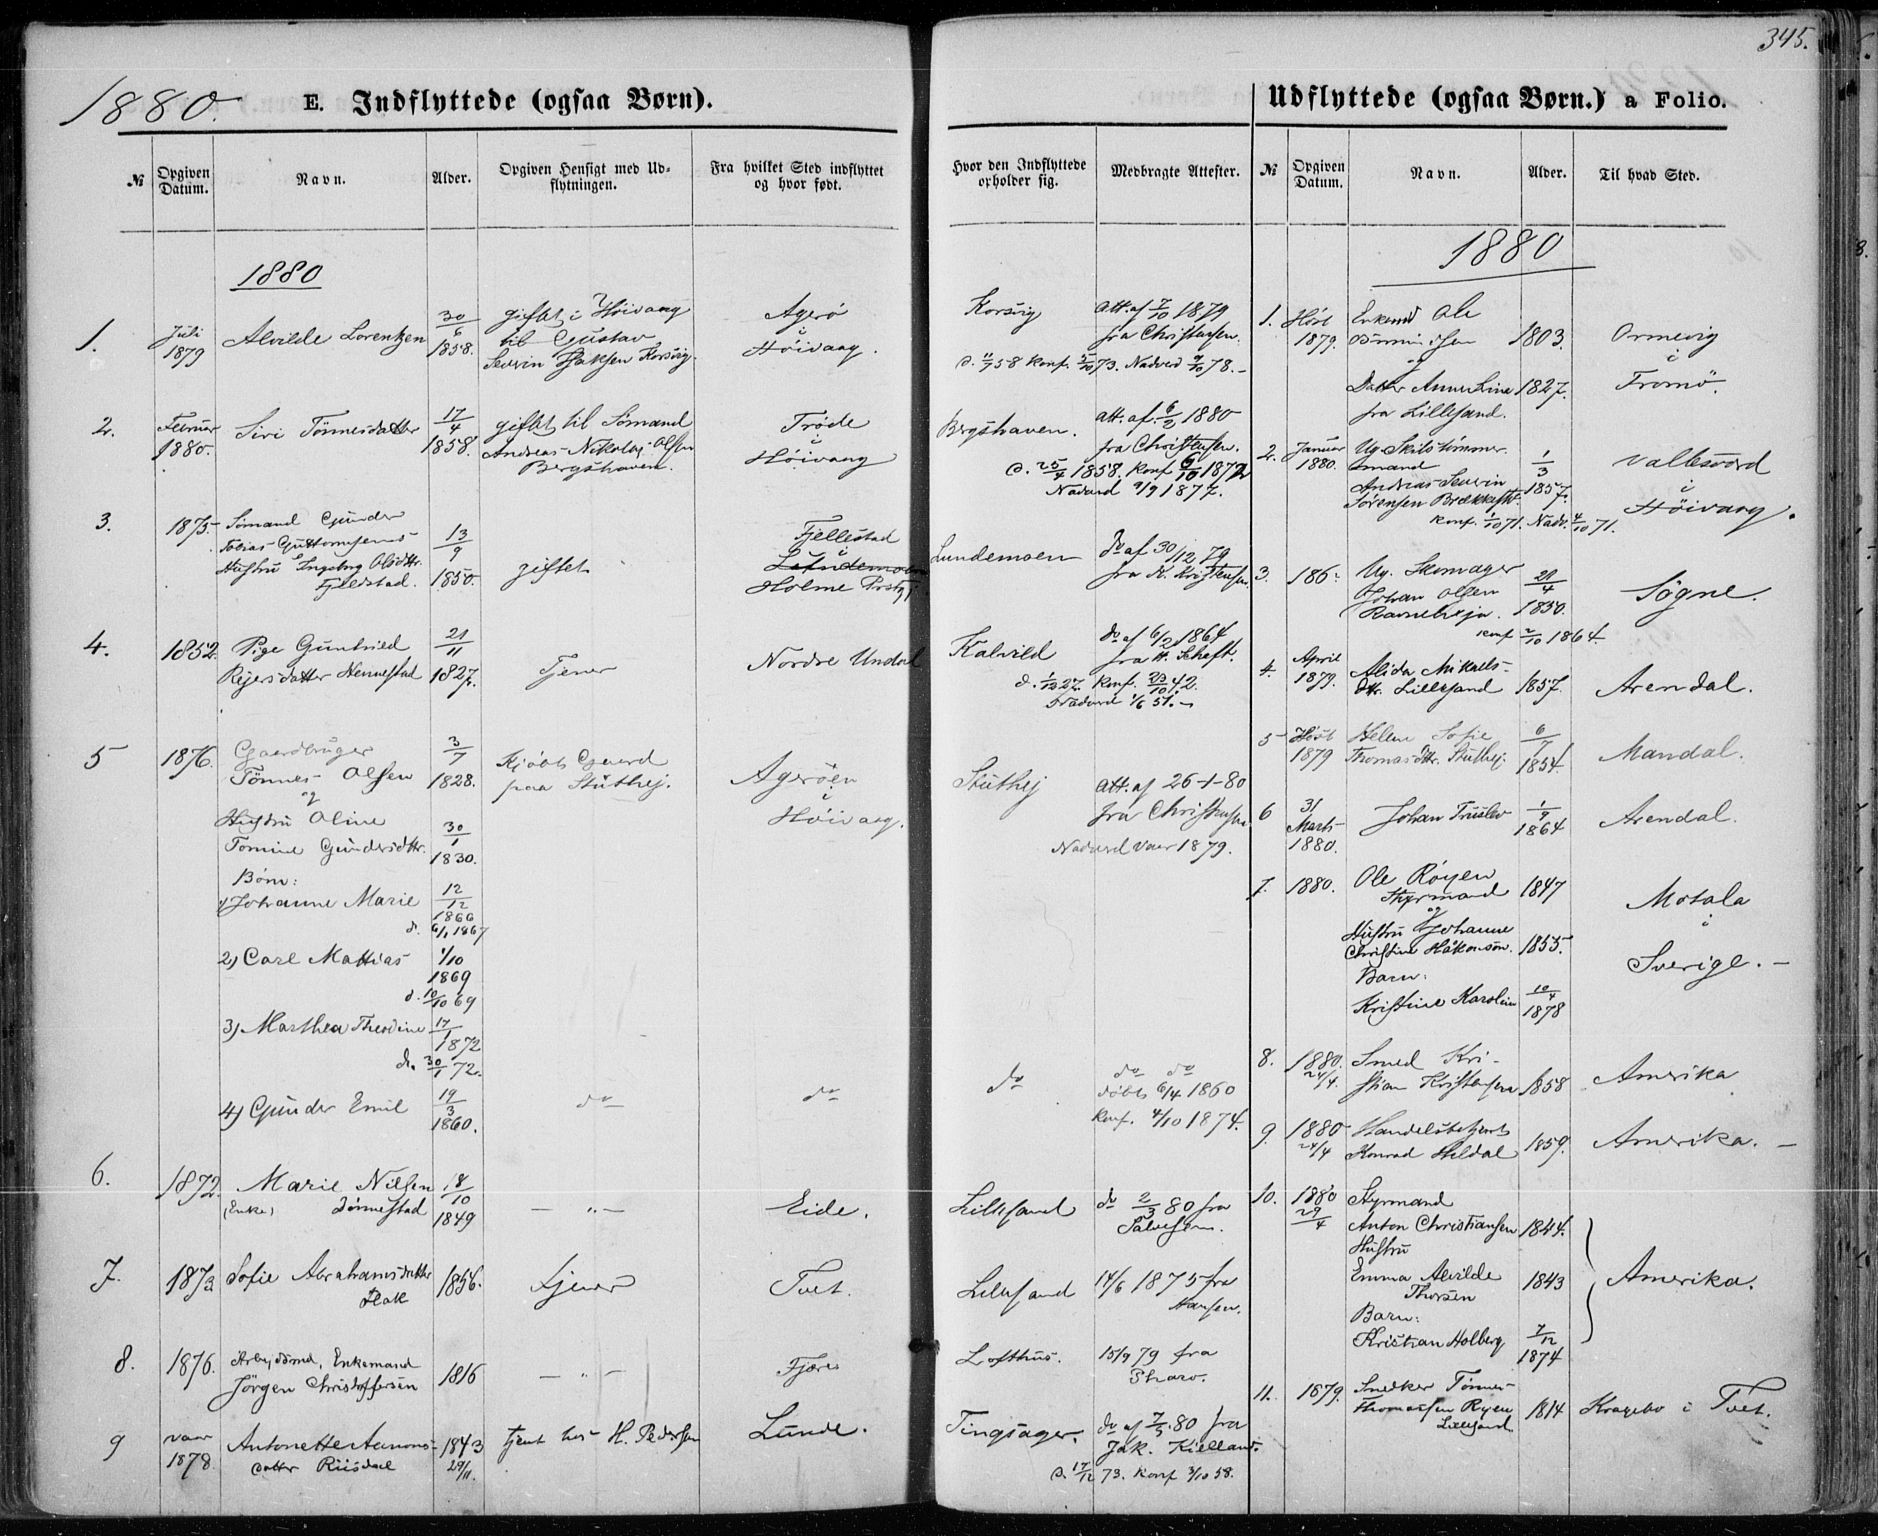 345.
1880.
E. Indflyttede (ogsaa Børn).
№
Opgiven Datum.
Navn.
Alder.
Opgiven Hensigt med Udflytningen.
Fra hvilket Sted indflyttet og hvor født.
Hvor den Indflyttede opholder sig.
Medbragte Attester.
1880
1.
Juli
1879
Alvilde Lorentzen
30/6
1858.
giftet i Høivaag
til Gustav
Severin Isaksen Korsvig.
Agerø
i
Høivaag.
Korsvig
Att. af 7/10 1879
fra Christensen.
d. 11/7 58 konf. 5/10 73. Nadverd 9/10 78.
2.
Februar
1880.
Siri Tønnesdatter
17/4
1858.
giftet til Sømand
Andreas Nikolai Olsen
Bergshaven.
Trøde
i
Høivaag
Bergshaven.
att. af 6/2 1880
fra Christensen.
d. 25/4 1858. Konf. 6/10 1872
Nadverd 9/9 1877.
3.
1875
Sømand Gunder
Tobias Guttormsens
Hustru Ingeborg Olsdttr.
Fjeldstad.
13/9
1850.
giftet
Fjellestad
i
Holme Prstgj
Lundemoen
do af 30/12 79
fra Kr. Kristensen.
4.
1852.
Pige Gunhild
Reiersdatter Hennestad
21/11
1827.
Tjener
Nordre Undal
Kalvild
do af 6/2 1864
fra H. Scheft.
d. 1/12 27. Konf. 23/10 42.
Nadverd 1/6 51.
5
1876.
Gaardbruger
Tønnes Olsen
og
3/7
1828.
Hustru Oline
Tomine Gundersdttr.
30/1
1830.
Børn:
1) Johanne Marie
12/12
1866
d. 6/1 1867
2) Carl Mathias
1/10
1869
d. 10/10 69
3) Marthea Theodine
17/1
1872
d. 30/1 72.
4) Gunder Emil
19/3
1860.
Kjøbt Gaard
paa Stuthej.
Agerøen
i
Høivaag.
Stuthej
att. af 26-1-80
fra Christensen
Nadverd vaar 1879.
do
do
do
do do
døbt 6/4 1860
Konf. 4/10 1874.
6.
1872.
Marie Nilsen
(Enke) Dønnestad
18/10
1849
— " —
Eide.
Lillesand
do 2/3 80 fra
Salvesen.
7.
1873
Sofie Abrahamsdatter
Hak
1856.
tjener
Tvet.
Lillesand
14/6 1875 fra
Hansen.
8.
1876.
Arbejdsmd, Enkemand
Jørgen Christoffersen
1816
— " —
Fjære
Lofthus.
15/9 79 fra
Tharo.
9
vaar
1878.
Antonette Aanons-
datter Riisdal
1843
29/11.
tjent hos H. Pedersen
Lunde.
Tingsager.
do af 7/5 80 fra
Jak. Kielland.
d. 17/12 73. Konf 3/10 58.
Udflyttede (ogsaa Børn.) a Folio.
№
Opgiven Datum.
Navn.
Alder.
Til hvad Sted.
1880
1.
Høst
1879.
Enkemd Ole
og
1803.
Datter Anne Line
fra Lillesand.
1827.
Ormevig
i
Tromø.
2.
Januar
1880.
Ug. Skibstømmer
smand
Andreas Severin
Sørensen Brækkestø.
1/3
1857.
Konf. 1/10 71. Nadv. 4/10 71.
Vallesværd
i
Høivaag.
3.
186
Ug. Skomager
Johan Olsen
21/4
1850.
Konf 2/10 1864
Søgne.
4.
April
1879.
Alida Mikaels-
dtr. Lillesand
1857.
Arendal.
5
Høst
1879
Helene Sofie
Thomasdttr. Stuthej.
6/7
1854.
Mandal.
6
31
Marts
1880.
Johan Truslev
1/9
1864
Arendal.
7.
1880.
Ole Røyen
Styrmand
og
1847
Hustru Johanne
Christine Håkonsøn.
1855.
Barn:
Kristine Karoline
10/4
1878
Motala
i
Sverige. —
8.
1880.
24/4.
Smed Kri-
stian Kristensen
1858
Amerika
9.
1880
24/4
Handelsbetjent
Konrad Heldal
1859.
Amerika. —
10.
1880
29/4
Styrmand
Anton Christiansen
1844.
Hustru
Emma Alvilde
Thorsen
1843
Barn:
Kristian Holberg
7/12
1874
Amerika.
11.
1879.
Snedker Tønnes
Thomassen Røyen
Lillesand
1814
Kragebo i Tvet.